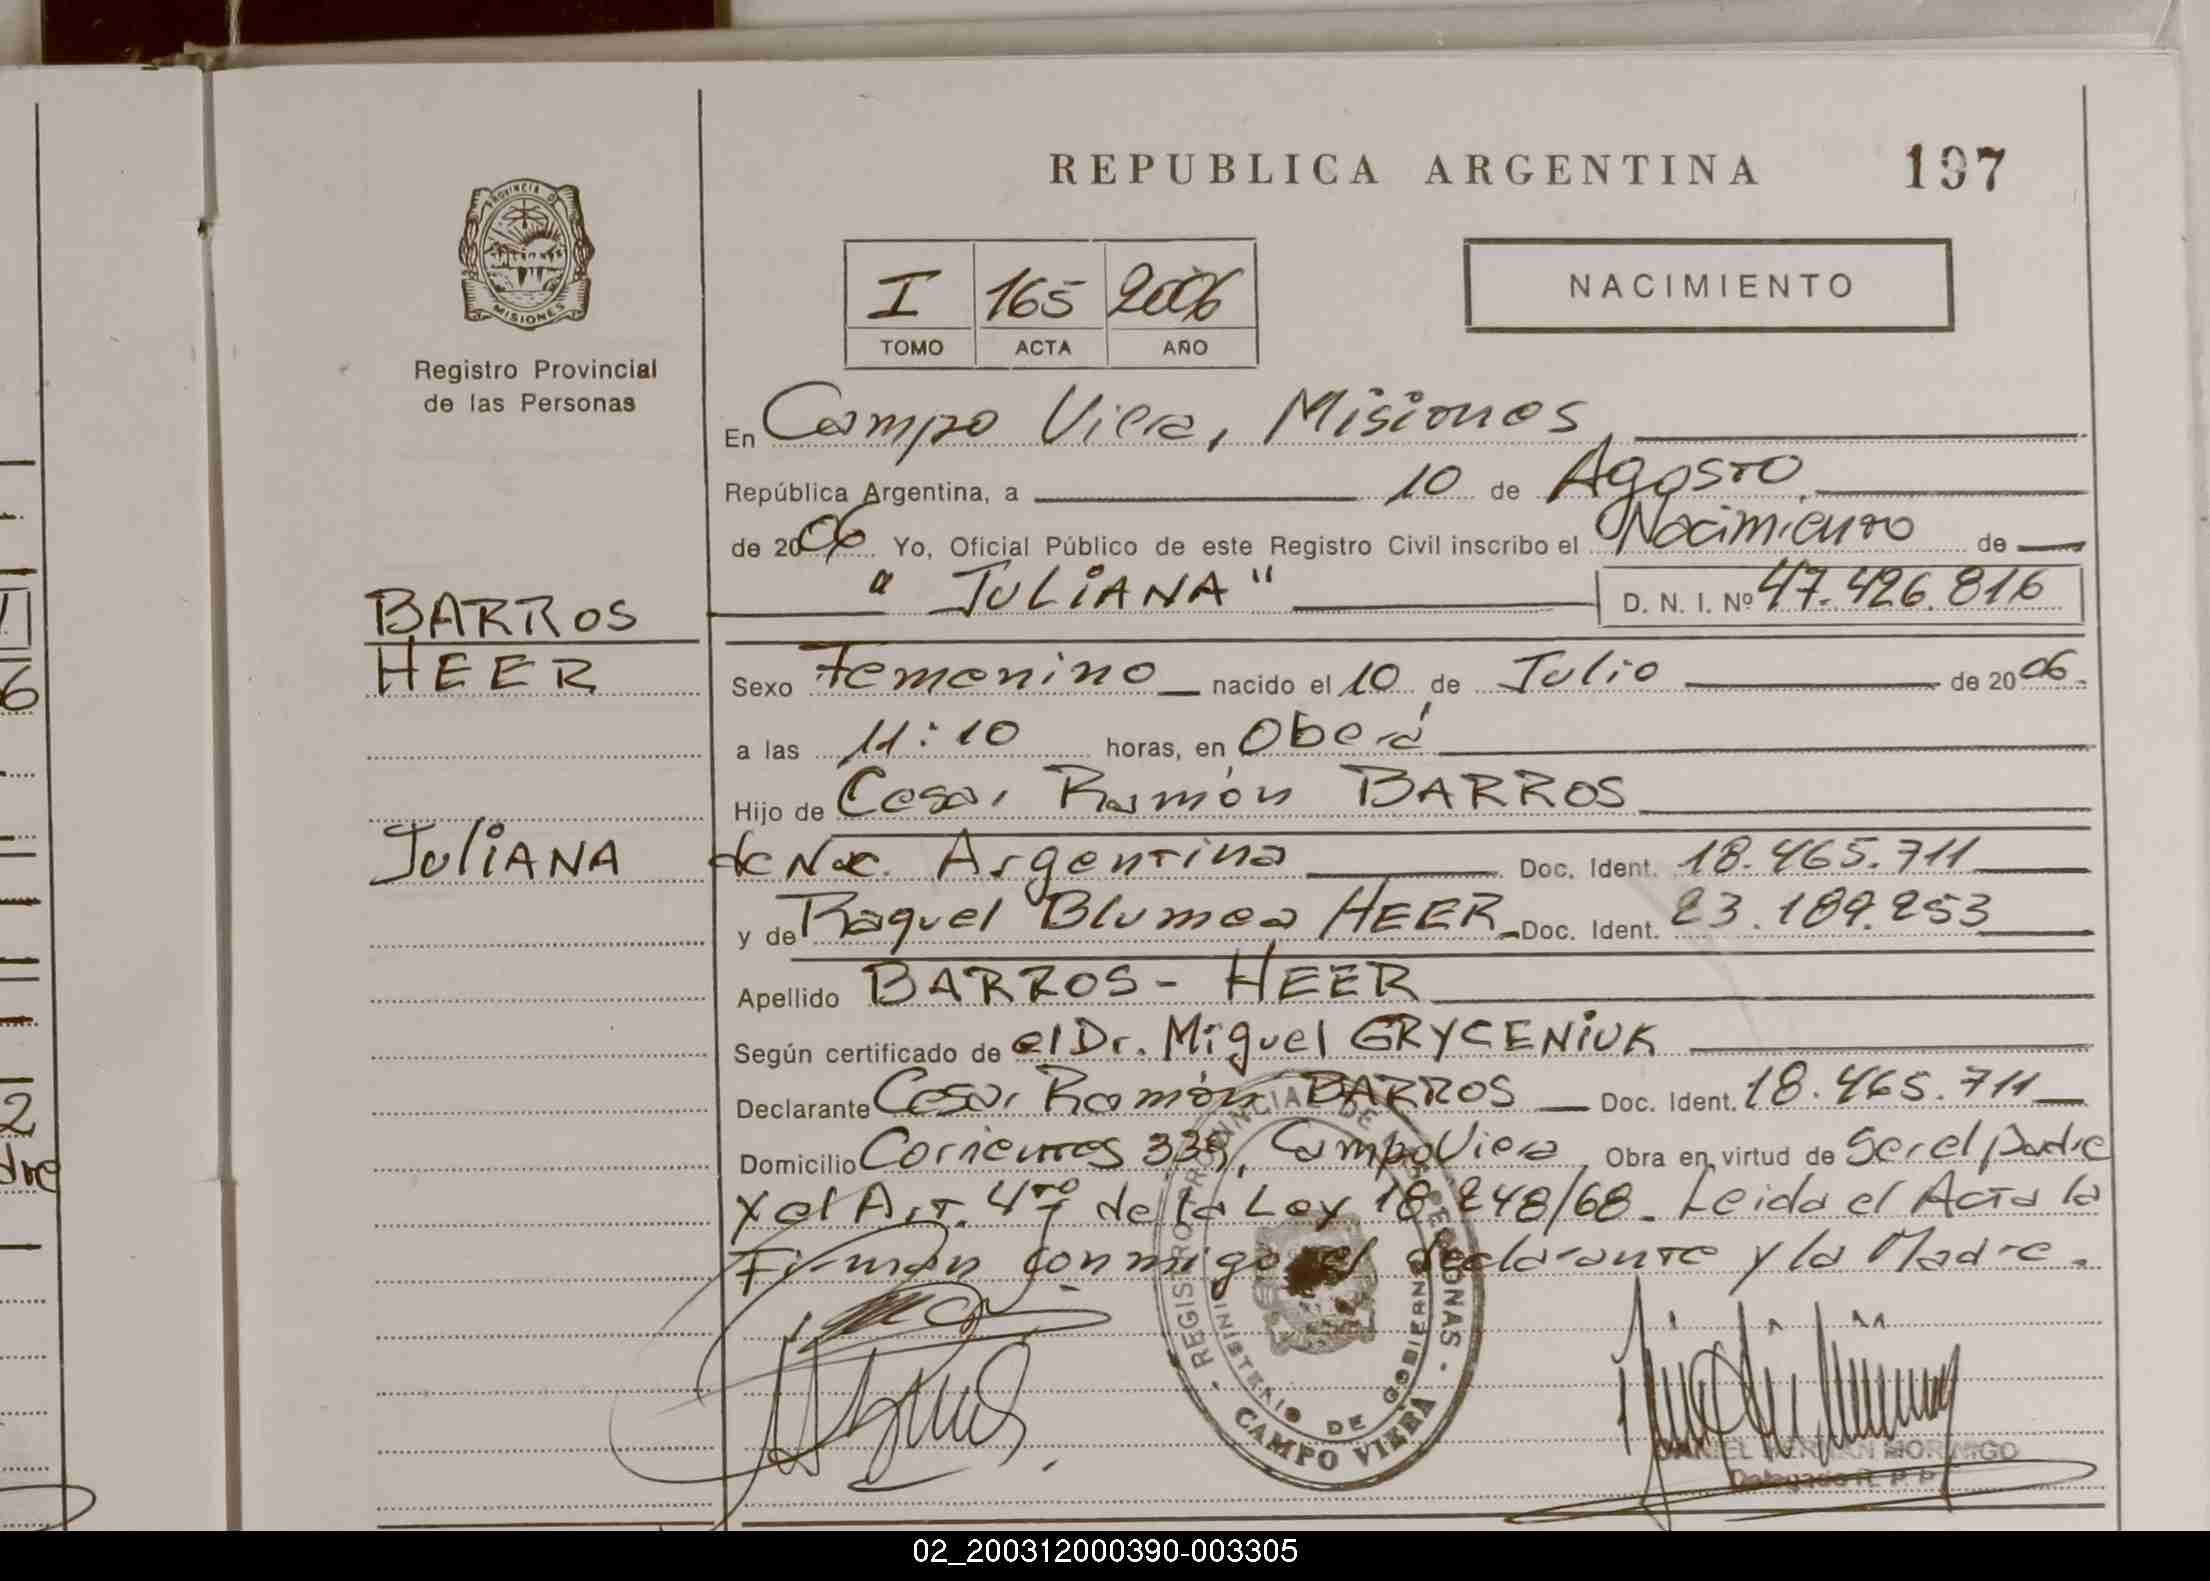 REPUBLICA ARGENTINA 197
PROVINCIA DE
MISIONES
Registro Provincial
de las Personas
NACIMIENTO
I 165 2006
TOMO ACTA AÑO
En Campo Viera, Misiones
República Argentina, a 10 de Agosto
de 2006 Yo, Oficial Público de este Registro Civil inscribo el Nacimiento de
"JULIANA" D. N. I. Nº 47.426.816
BARROS
HEER
Sexo Femenino nacido el 10 de Julio de 2006.
a las 11:10 horas, en Oberá
Hijo de Cesar Ramón BARROS
JULIANA
de Nac. Argentina Doc. Ident. 18.465.711
y de Raquel Blumea HEER Doc. Ident. 23.189.253
Apellido BARROS - HEER
Según certificado de el Dr. Miguel GRYCENIUK
Declarante Cesar Ramón BARROS Doc. Ident. 18.465.711
Domicilio Corrientes 339, Campo Viera, Obra en virtud de Ser el padre
y el Art. 4to de la Ley 18.248/68. Leida el Acta la
Firman conmigo el declarante y la Madre.
REGISTRO PROVINCIAL DE LAS PERSONAS
MINISTERIO DE GOBIERNO
CAMPO VIERA
DANIEL HERNAN MORINIGO
Delegado R. P. P.
02_200312000390-003305